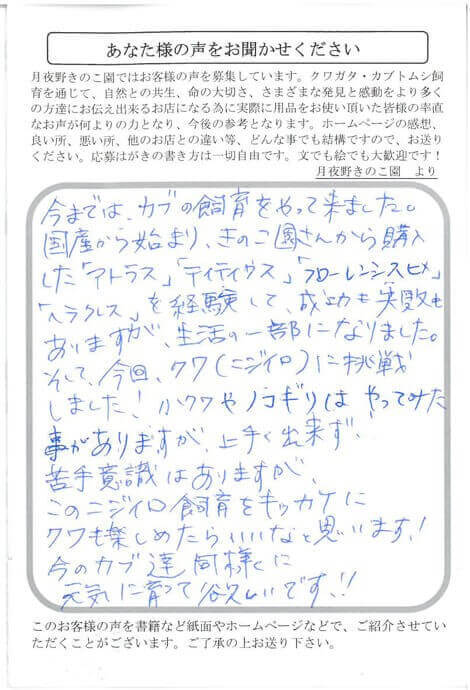 あなた様の声をお聞かせください
月夜野きのこ園ではお客様の声を募集しています。クワガタ・カブトムシ飼
育を通じて、自然との共生、命の大切さ、さまざまな発見と感動をより多く
の方達にお伝え出来るお店になる為に実際に用品をお使い頂いた皆様の率直
なお声が何よりの力となり、今後の参考となります。ホームページの感想、
良い所、悪い所、他のお店との違い等、どんな事でも結構ですので、お送り
ください。応募はがきの書き方は一切自由です。文でも絵でも大歓迎です！
月夜野きのこ園　より
今までは、カブの飼育をやって来ました。
国産から始まり、きのこ園さんから購入
した「アトラス」「ティティウス」「フローレンシスヒメ」
「ヘラクレス」を経験して、成功も失敗も
ありますが、生活の一部になりました。
そして、今回、クワ(ニジイロ)に挑戦
しました！小クワやノコギリはやってみた
事がありますが、上手く出来ず、
苦手意識はありますが、
このニジイロ飼育をキッカケに
クワも楽しめたらいいなと思います！
今のカブ達同様に
元気に育って欲しいです！！
このお客様の声を書籍など紙面やホームページなどで、ご紹介させてい
ただくことがございます。ご了承の上お送り下さい。